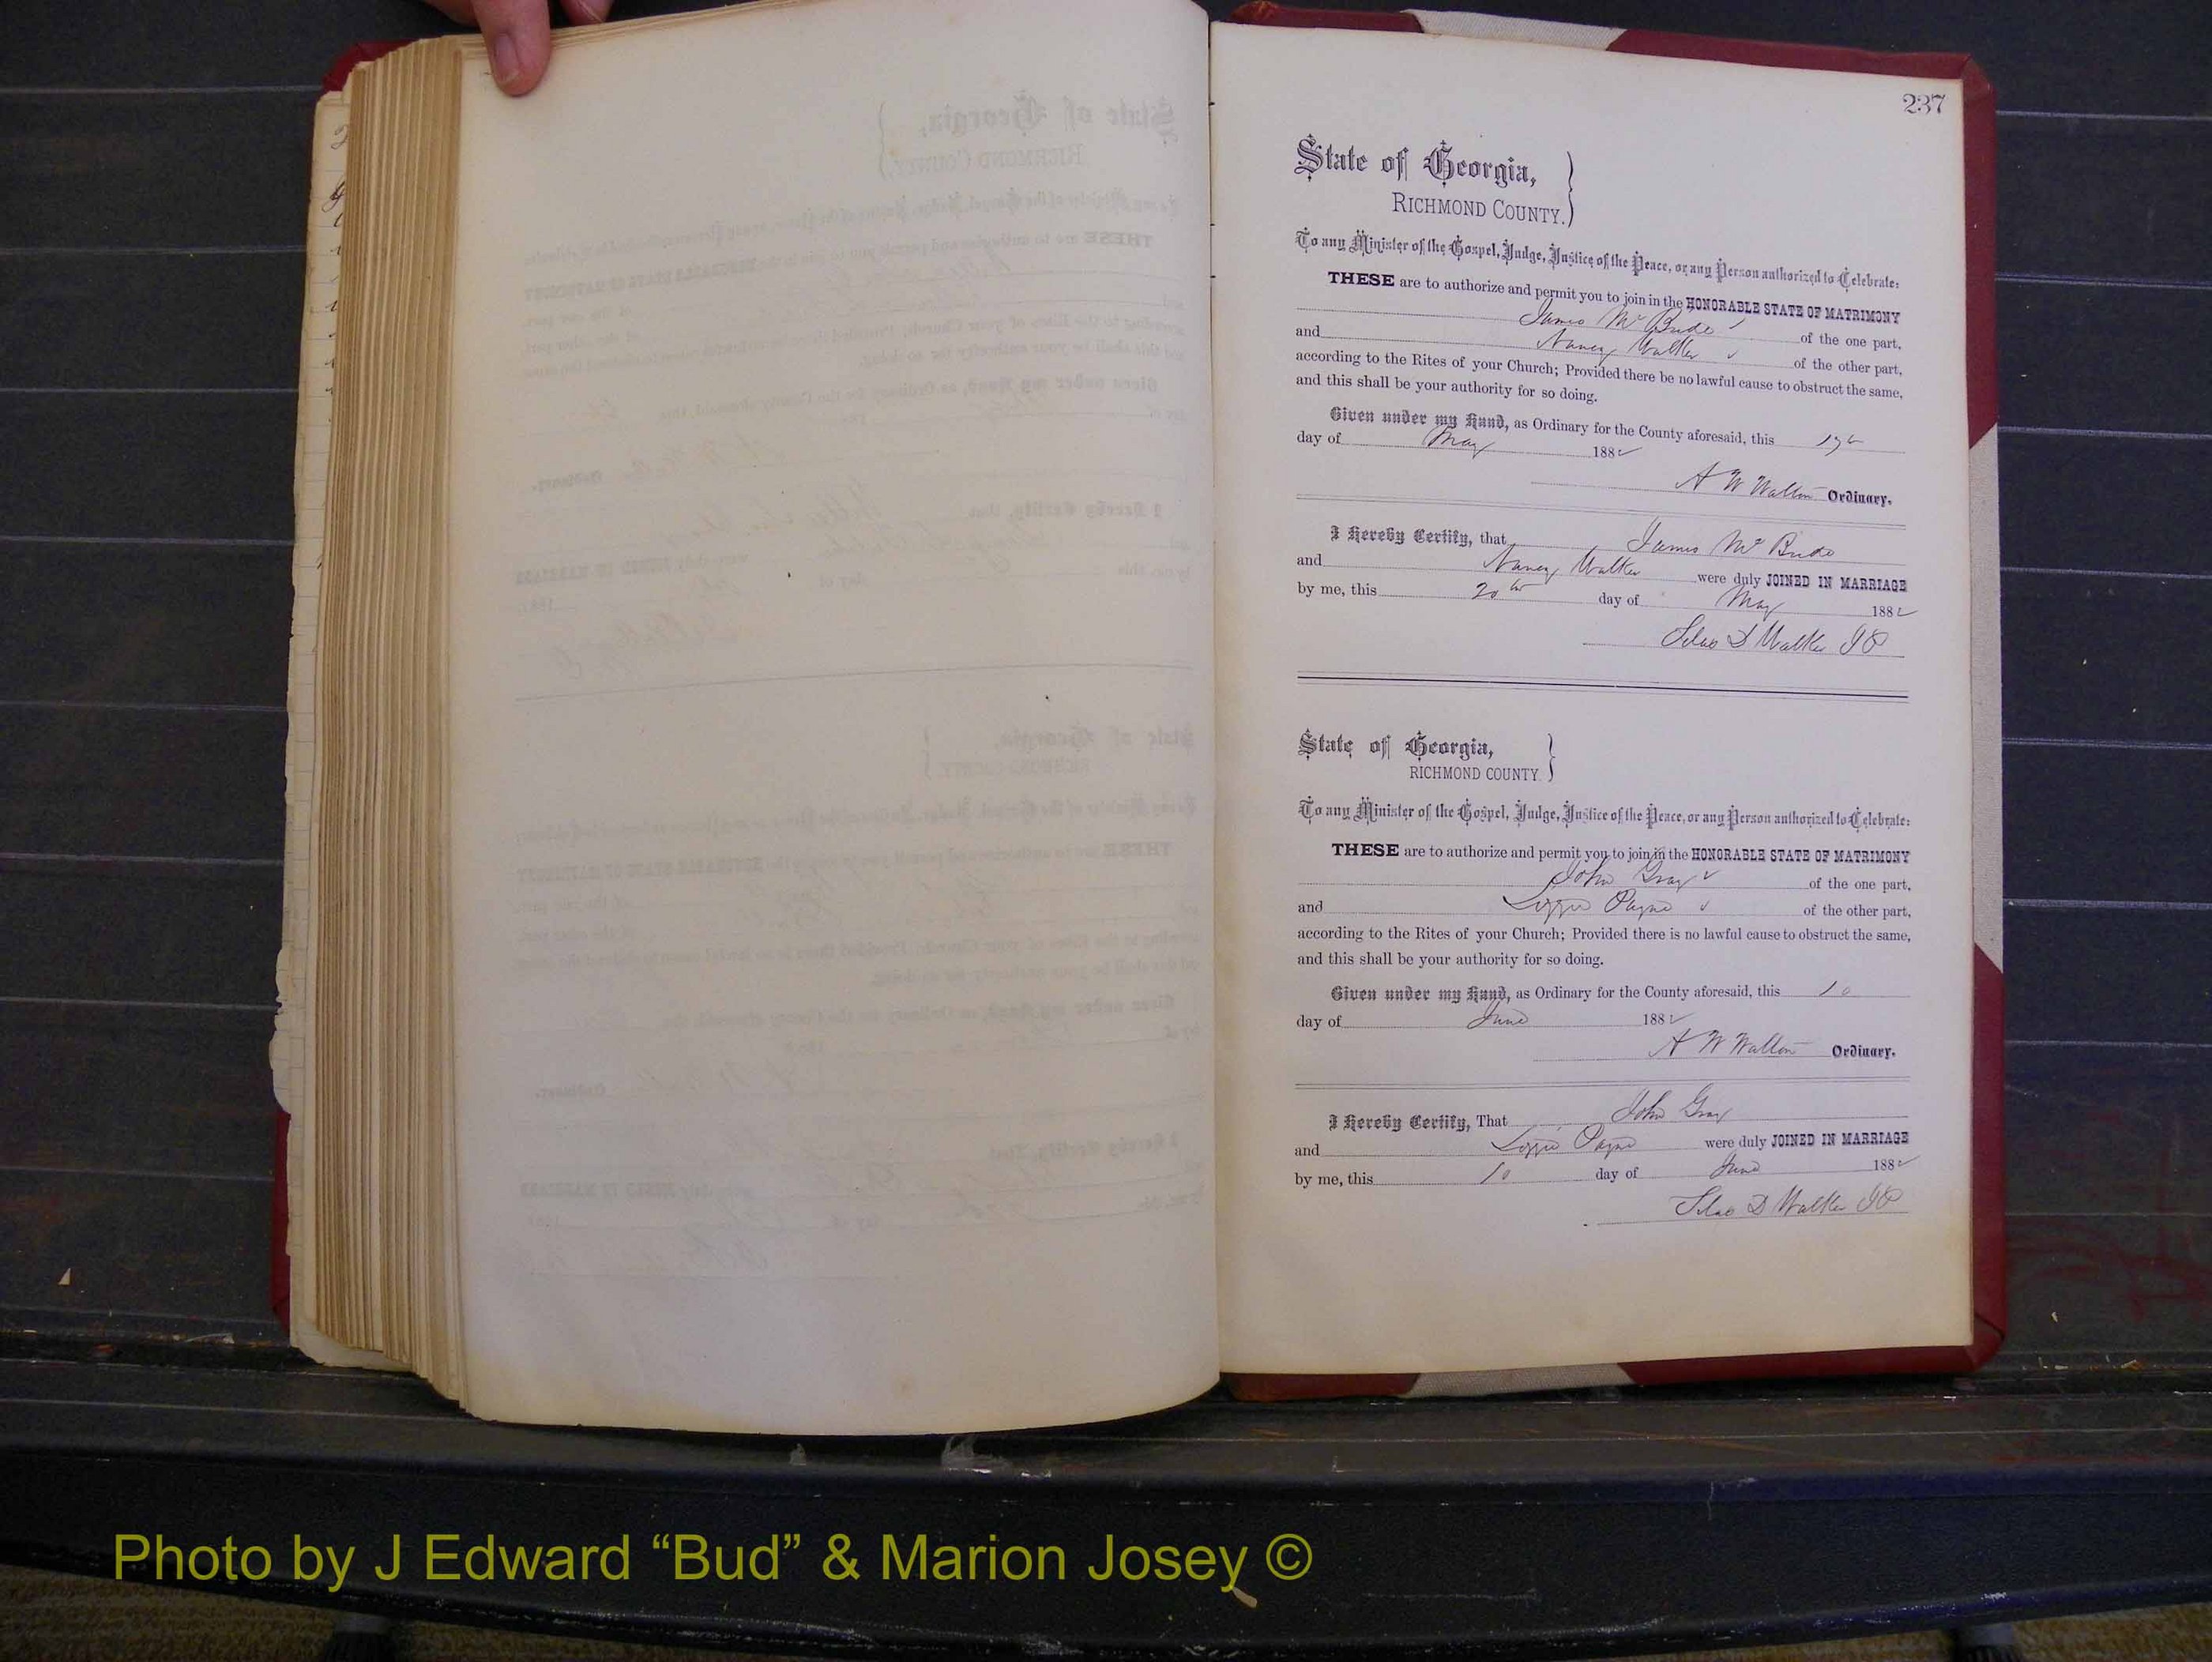 237
State of Georgia,
RICHMOND COUNTY.
To any Minister of the Gospel, Judge, Justice of the Peace, or any Person authorized to Celebrate:
THESE are to authorize and permit you to join in the HONORABLE STATE OF MATRIMONY
James Mc Bride of the one part,
and Nancy Walker of the other part,
according to the Rites of your Church; Provided there be no lawful cause to obstruct the same,
and this shall be your authority for so doing.
Given under my Hand, as Ordinary for the County aforesaid, this
day of May 1882
A W Walton Ordinary.
I Hereby Certify, that James Mc Bride
and Nancy Walker were duly JOINED IN MARRIAGE
by me, this 20th day of May 1882
Silas D Walker JP
State of Georgia,
RICHMOND COUNTY.
To any Minister of the Gospel, Judge, Justice of the Peace, or any Person authorized to Celebrate:
THESE are to authorize and permit you to join in the HONORABLE STATE OF MATRIMONY
John Gray of the one part,
and Lizzie Payne of the other part,
according to the Rites of your Church; Provided there is no lawful cause to obstruct the same,
and this shall be your authority for so doing.
Given under my Hand, as Ordinary for the County aforesaid, this 10
day of June 1882
A W Walton Ordinary.
I Hereby Certify, That John Gray
and Lizzie Payne were duly JOINED IN MARRIAGE
by me, this 10 day of June 1882
Silas D Walker JP
Photo by J Edward “Bud” & Marion Josey ©